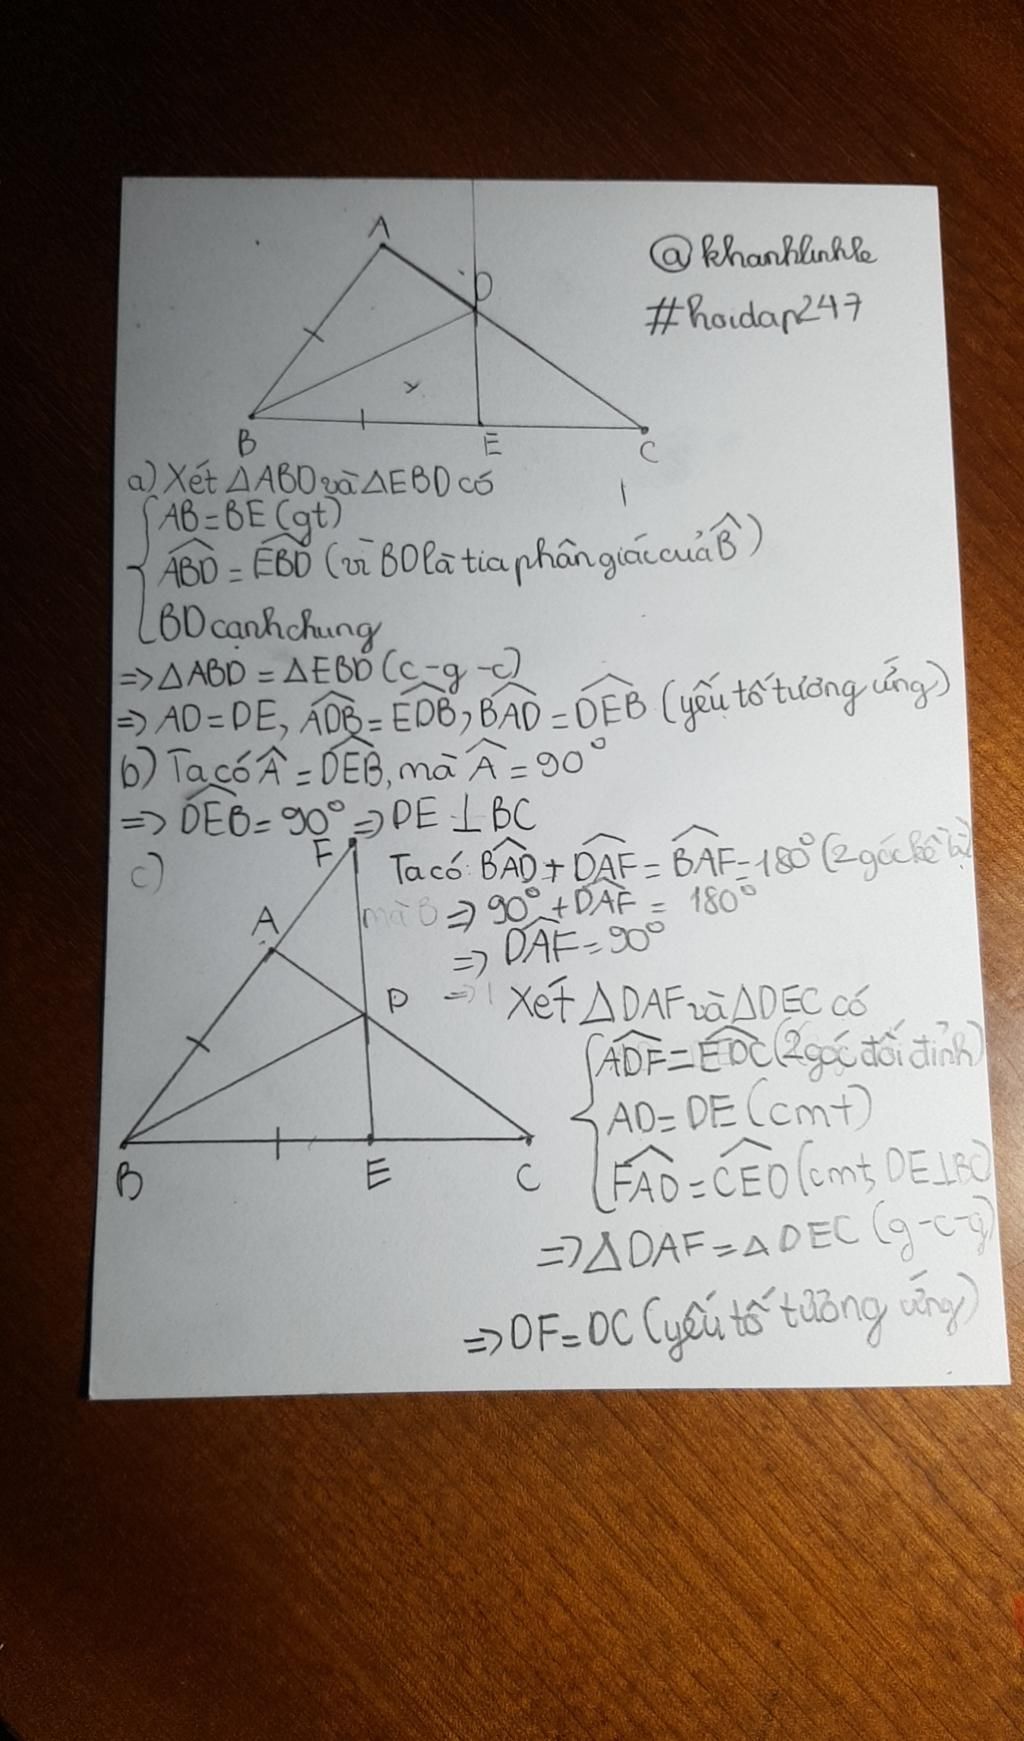 A
D
B
E
C
@khanhlinhle
#hoidap247
a) Xét △ABD và △EBD có
AB = BE (gt)
ABD̂ = EBD̂ (vì BD là tia phân giác của B̂)
BD cạnh chung
=> △ABD = △EBD (c-g-c)
=> AD = DE, ADB̂ = EDB̂, BAD̂ = DEB̂ (yếu tố tương ứng)
b) Ta có Â = DEB̂, mà Â = 90°
=> DEB̂ = 90° => DE ⊥ BC
c)
F
A
D
B
E
C
Ta có BAD̂ + DAF̂ = BAF̂ = 180° (2 góc kề bù
mà B => 90° + DAF̂ = 180°
=> DAF̂ = 90°
=> Xét △DAF và △DEC có
ADF̂ = EDĈ (2 góc đối đỉnh)
AD = DE (cmt)
FAD̂ = CED̂ (cmt, DE ⊥ BC)
=> △DAF = △DEC (g-c-g)
=> DF = DC (yếu tố tương ứng)